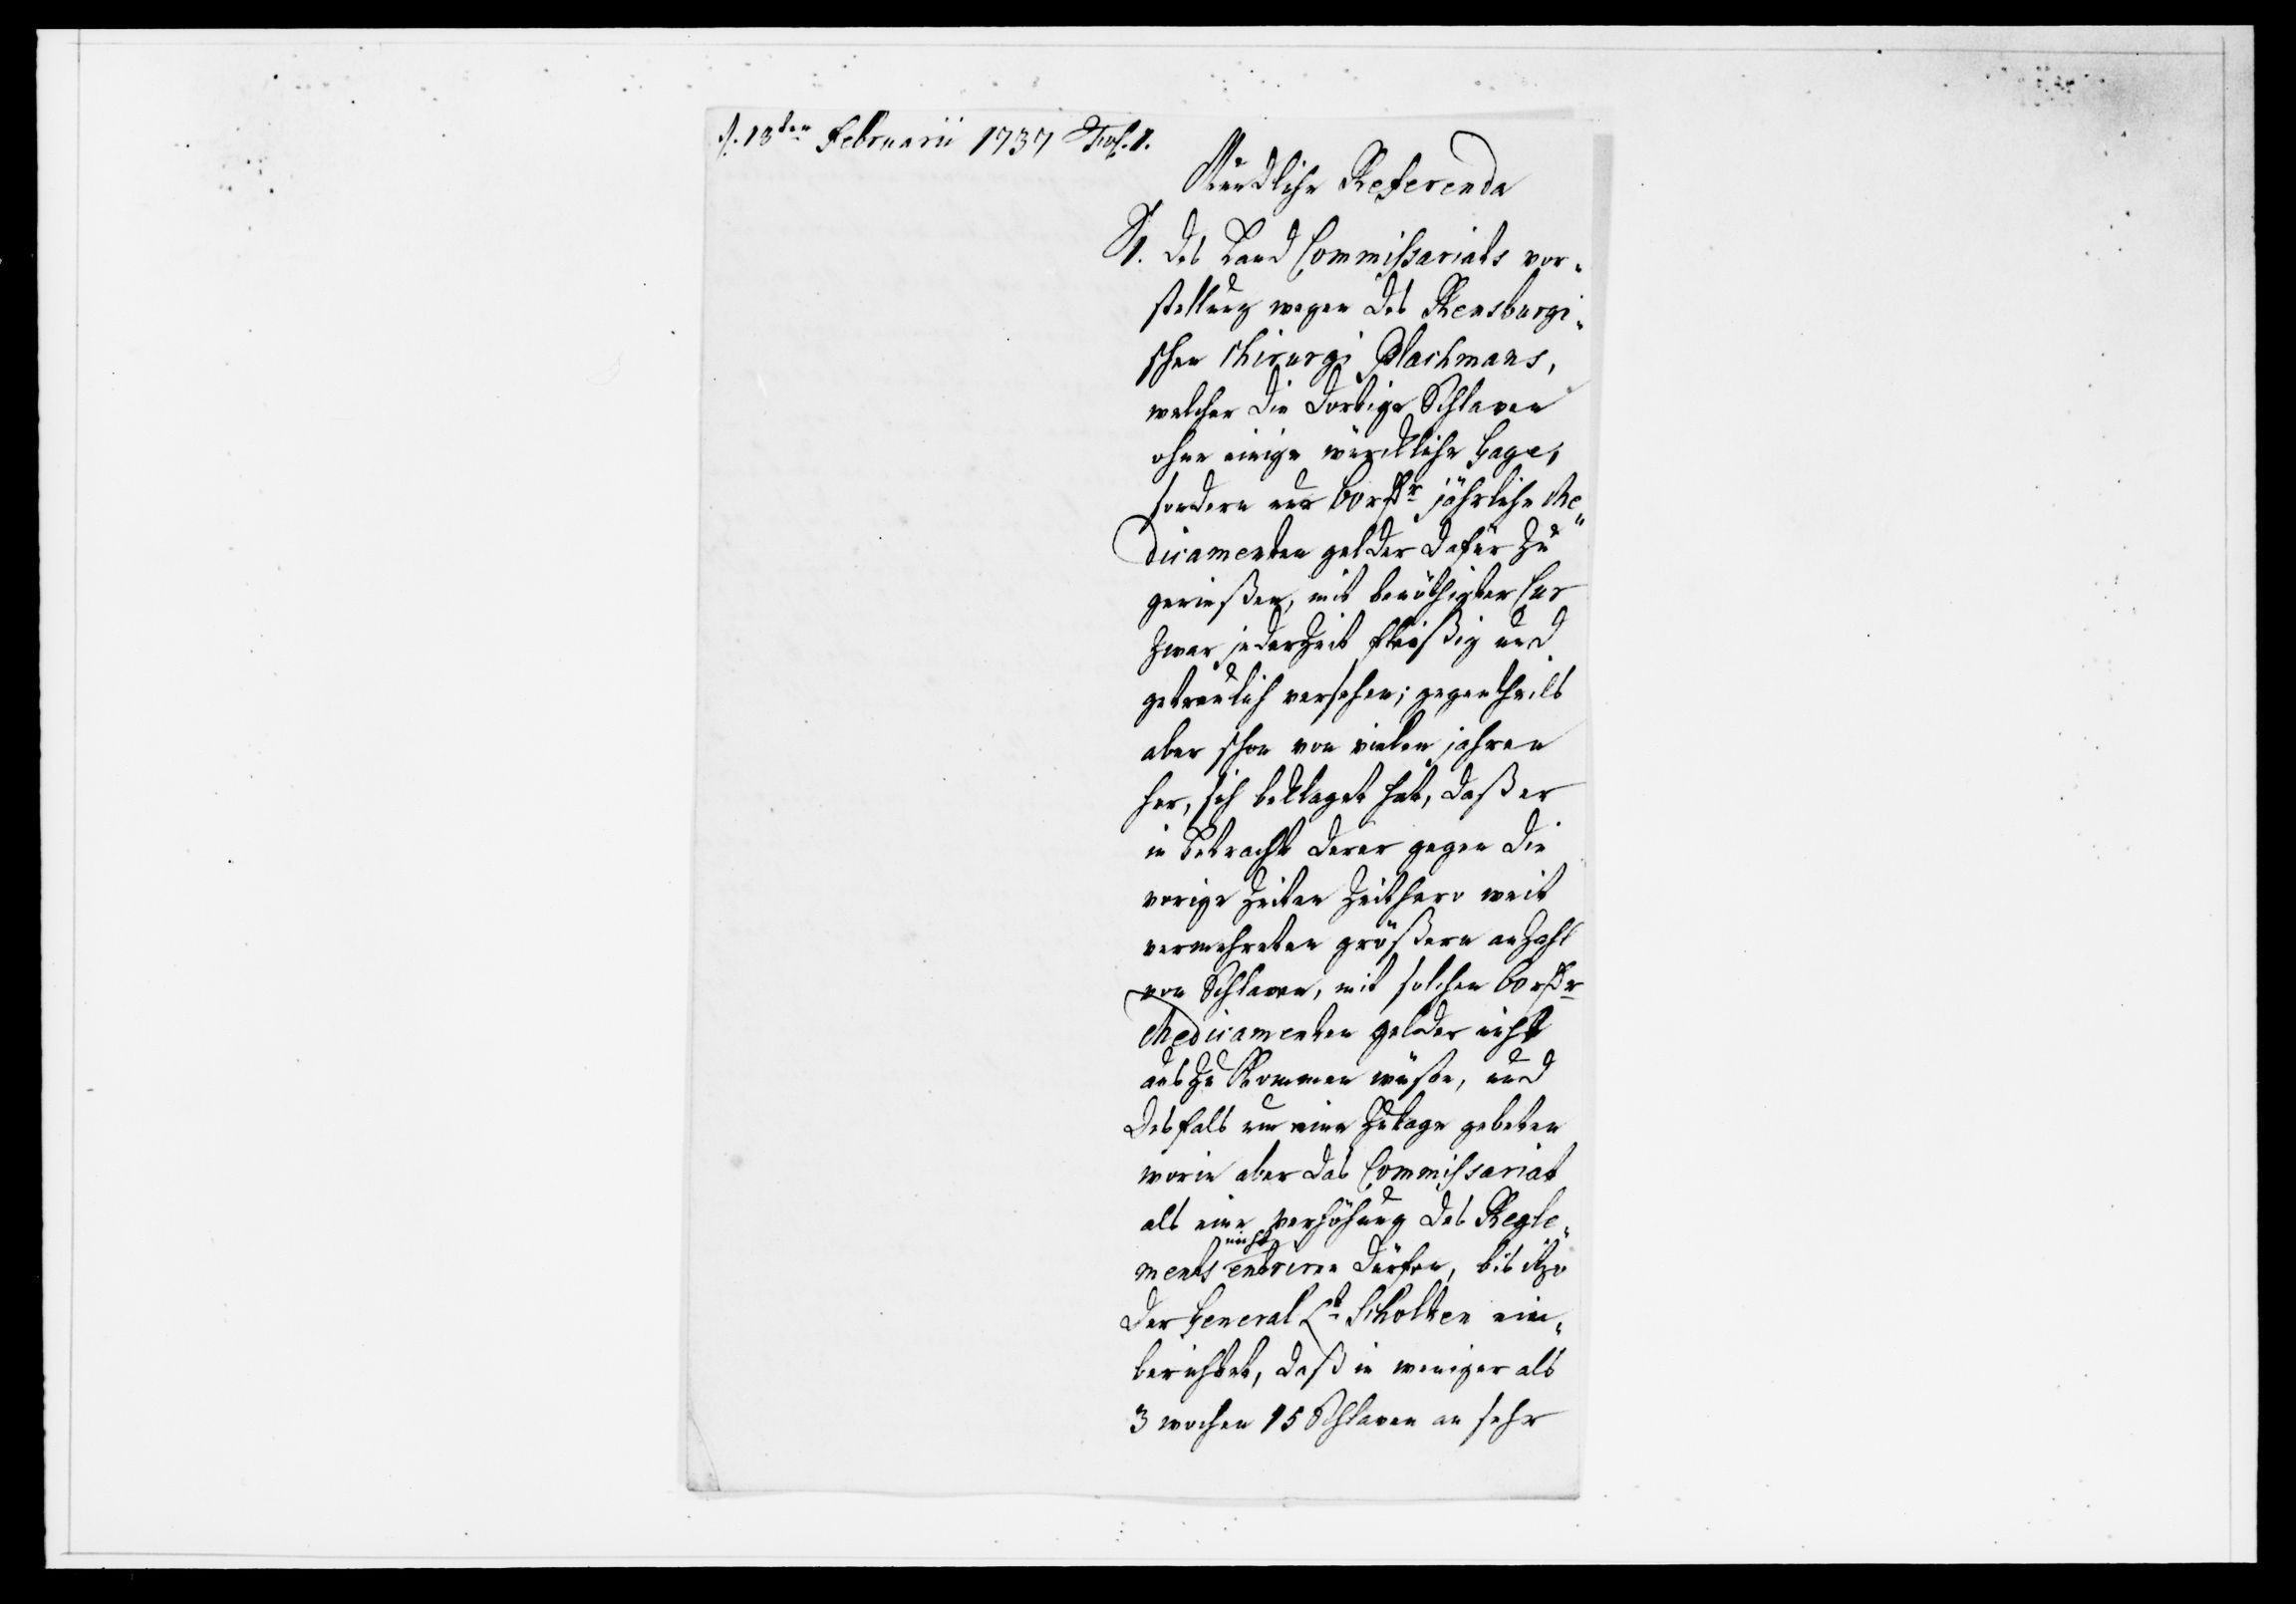 d. 13ten Februarii 1737 Fol. 1.
Mündliche Referenda
1. des Land Commissariats vor„
stellung wegen des Rensburgi„
schen Chirurgi Blachmans,
welcher die dortige Schlaven
ohne einige würckliche Gage,
sondern nur 60 rthr jährliche Me„
dicamenten gelder dafür zu
geniessen, mit benöthigter Cur
zwar jederzeit fleissig und
getreulich versehen; gegentheils
aber schon von vielen jahren
her, sich beklaget hat, dass er
in Betracht derer gegen die
vorige Zeiten Zeithero weit
vermehreten grössern anzahl
von Schlaven, mit solchen 60 rthr
Medicamenten gelder nicht
aus zu Kommen wüste, und
desfals um eine Zulage gebeten
worin aber das Commissariat
als eine verhöhung des Regle„
ments nicht entriren dürfen, bis itzo
der General Lt Scholten ein„
berichtet, dass in weniger als
3 wochen 15 Schlaven an sehr